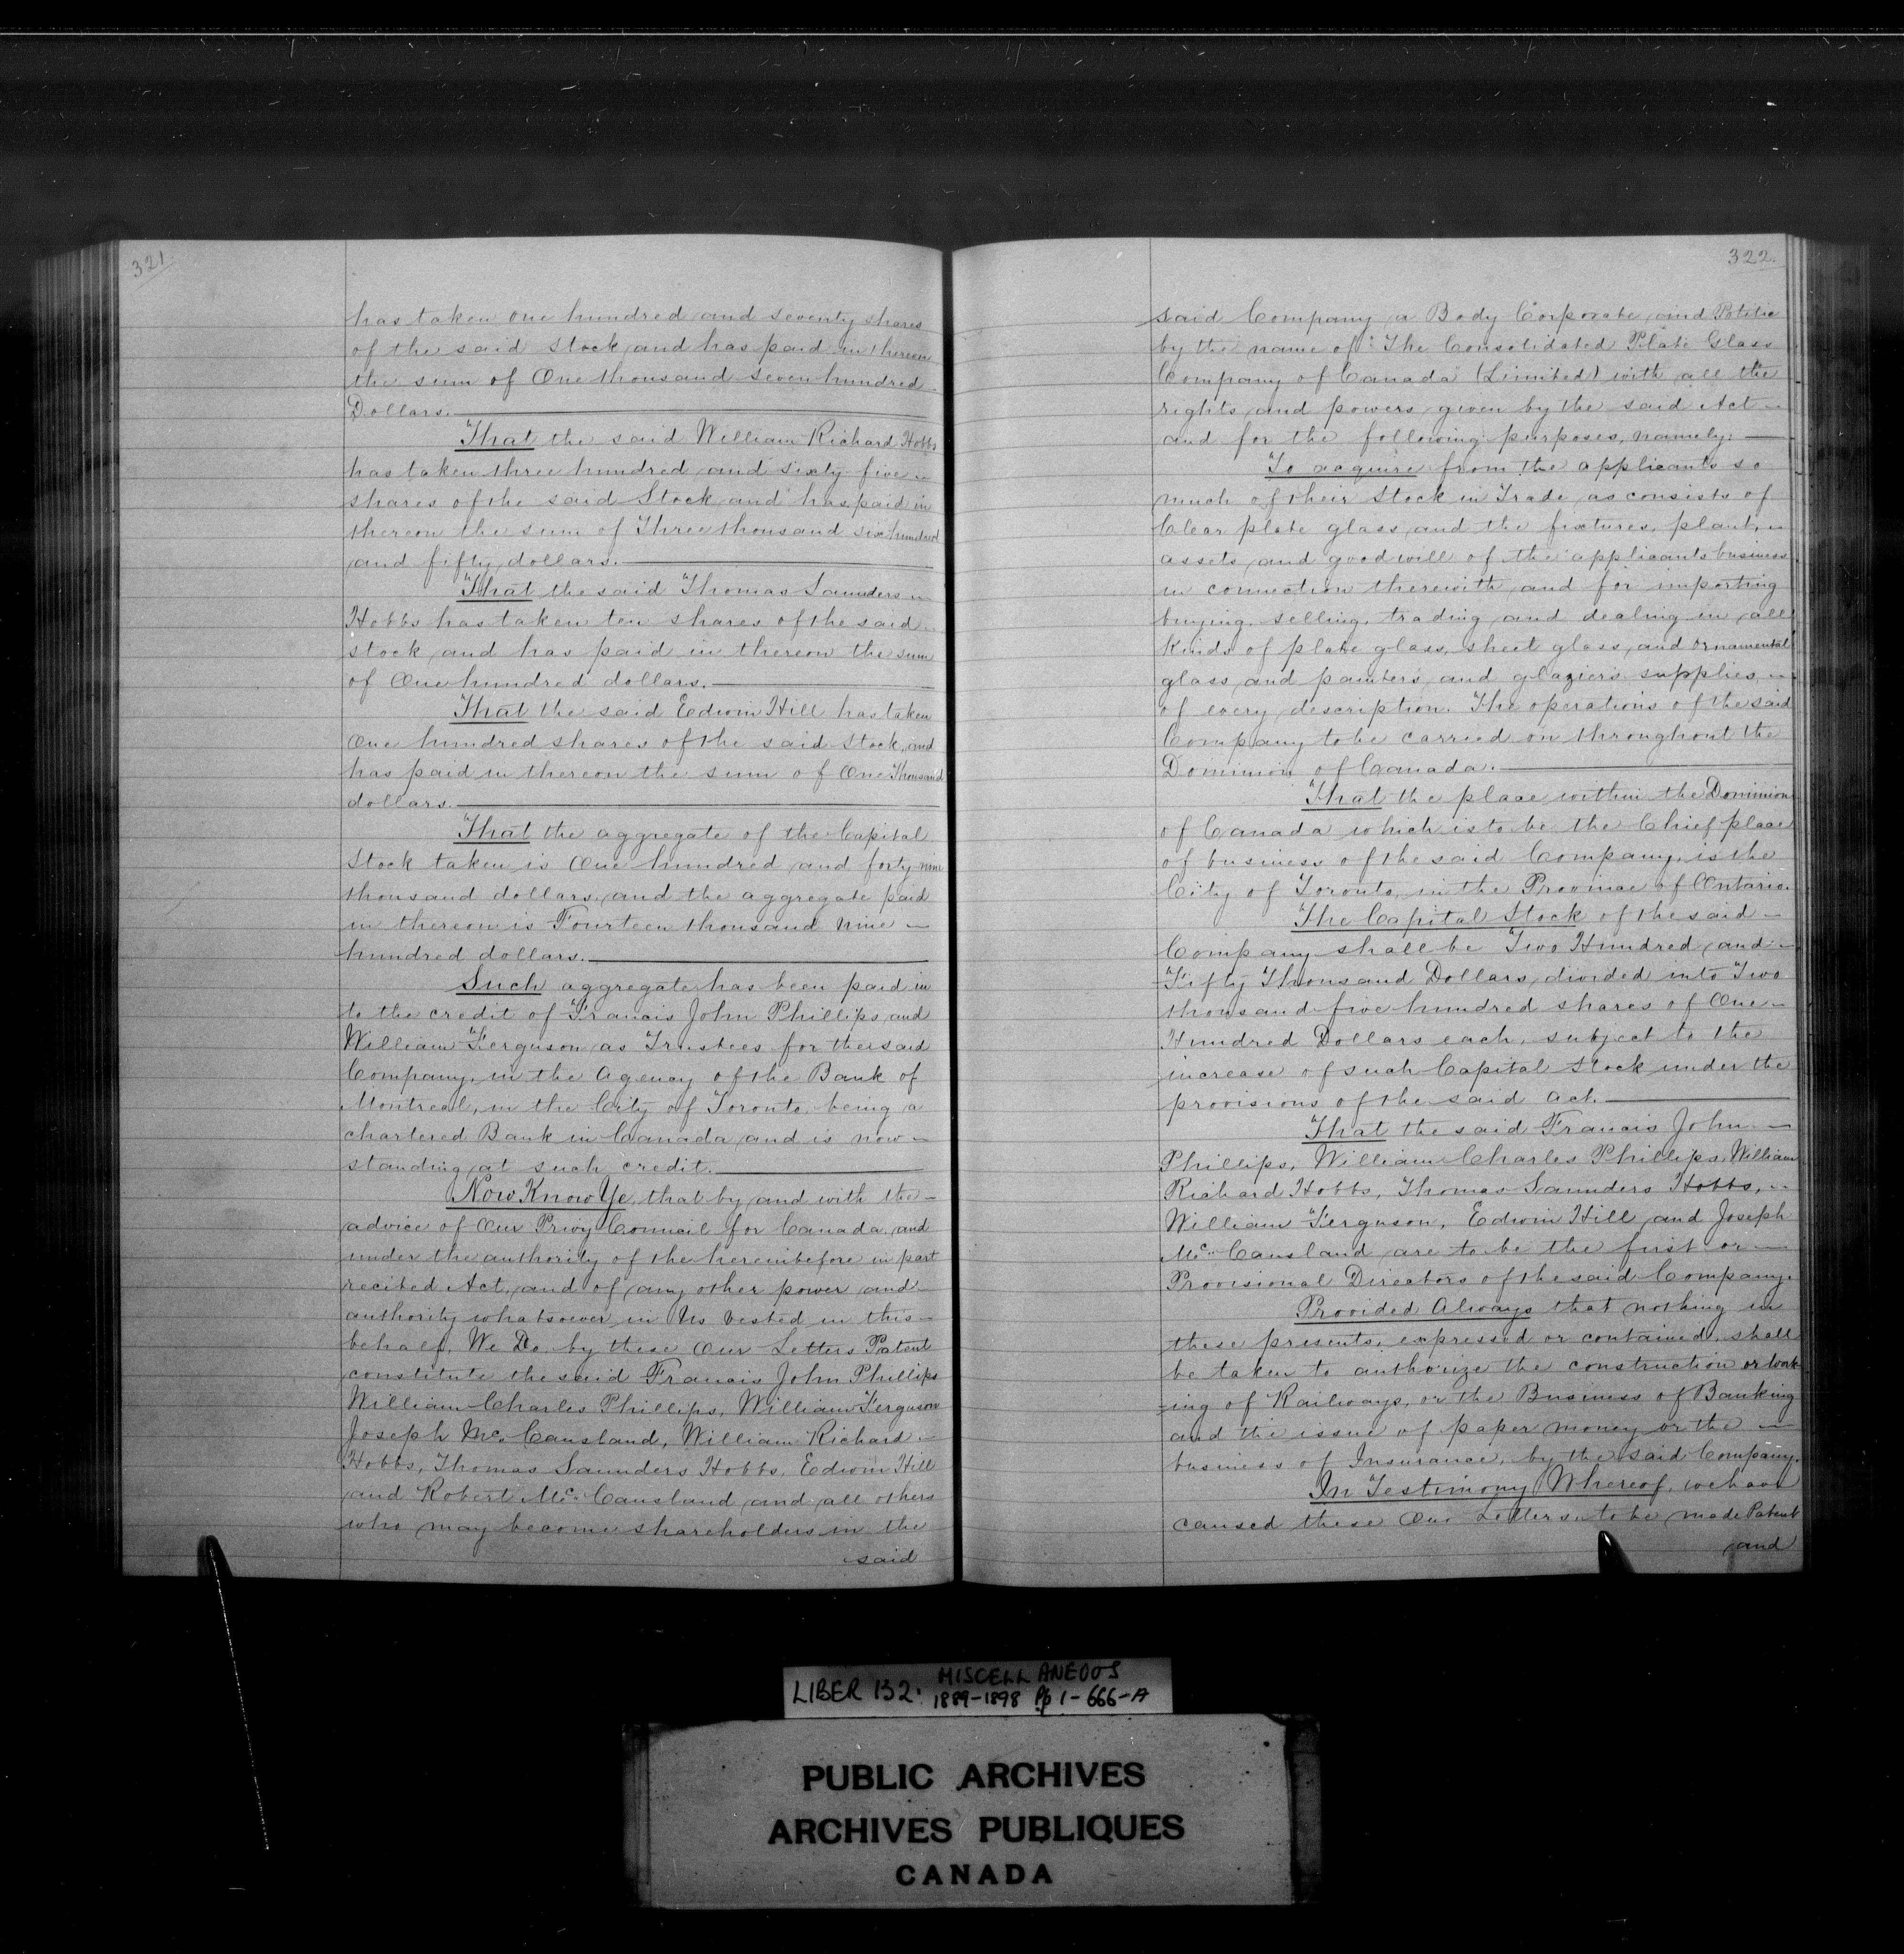 321.
has taken one hundred and seventy shares
of the said Stock and has paid in thereon
the sum of One thousand seven hundred
Dollars.
That the said William Richard Hobbs
has taken three hundred and sixty five
shares of the said Stock and has paid in
thereon the sum of Three thousand six hundred
and fifty dollars.
That the said Thomas Saunders
Hobbs has taken ten shares of the said
stock and has paid in thereon the sum
of One hundred dollars.
That the said Edwin Hill has taken
One hundred shares of the said Stock, and
has paid in thereon the sum of One Thousand
dollars.
That the aggregate of the Capital
Stock taken is One hundred and forty nine
thousand dollars, and the aggregate paid
in thereon is Fourteen thousand nine
hundred dollars.
Such aggregate has been paid in
to the credit of Francis John Phillips and
William Ferguson as Trustees for the said
Company, in the Agency of the Bank of
Montreal, in the City of Toronto, being a
chartered Bank in Canada and is now
standing at such credit.
Now Know Ye, that by and with the
advice of Our Privy Council for Canada, and
under the authority of the hereinbefore in part
recited Act, and of any other power and
authority whatsoever in Us vested in this
behalf, We Do by these Our Letters Patent
constitute the said Francis John Phillips
William Charles Phillips, William Ferguson
Joseph Mc. Causland, William Richard
Hobbs, Thomas Saunders Hobbs, Edwin Hill
and Robert Mc. Causland and all others
who may become shareholders in the
said
322.
said Company a Body Corporate and Politic
by the name of "The Consolidated Plate Glass
Company of Canada (Limited) with all the
rights and powers given by the said Act
and for the following purposes, namely:
To acquire from the applicants so
much of their Stock in Trade as consists of
Clear plate glass and the fixtures, plant,
assets and goodwill of the applicants business
in connection therewith, and for importing
buying, selling, trading and dealing in all
Kinds of plate glass, sheet glass, and ornamental
glass and painters and glaziers supplies
of every description. The operations of the said
Company to be carried on throughout the
Dominion of Canada.
That the place within the Dominion
of Canada which is to be the Chief place
of business of the said Company, is the
City of Toronto, in the Province of Ontario.
The Capital Stock of the said
Company shall be Two Hundred and
Fifty Thousand Dollars, divided into Two
thousand five hundred shares of One
Hundred Dollars each, subject to the
increase of such Capital Stock under the
provisions of the said act.
That the said Francis John
Phillips, William Charles Phillips, William
Richard Hobbs, Thomas Saunders Hobbs,
William Ferguson, Edwin Hill and Joseph
Mc. Causland are to be the first or
Provisional Directors of the said Company.
Provided Always that nothing in
these presents, expressed or contained, shall
be taken to authorize the construction or work
=ing of Railways, or the Business of Banking
and the issue of paper money or the
business of Insurance, by the said Company.
In Testimony Whereof, we have
caused these Our Letters to be made Patent
and
LIBER 132: MISCELLANEOUS
1889-1898 Pp 1-666-A
PUBLIC ARCHIVES
ARCHIVES PUBLIQUES
CANADA